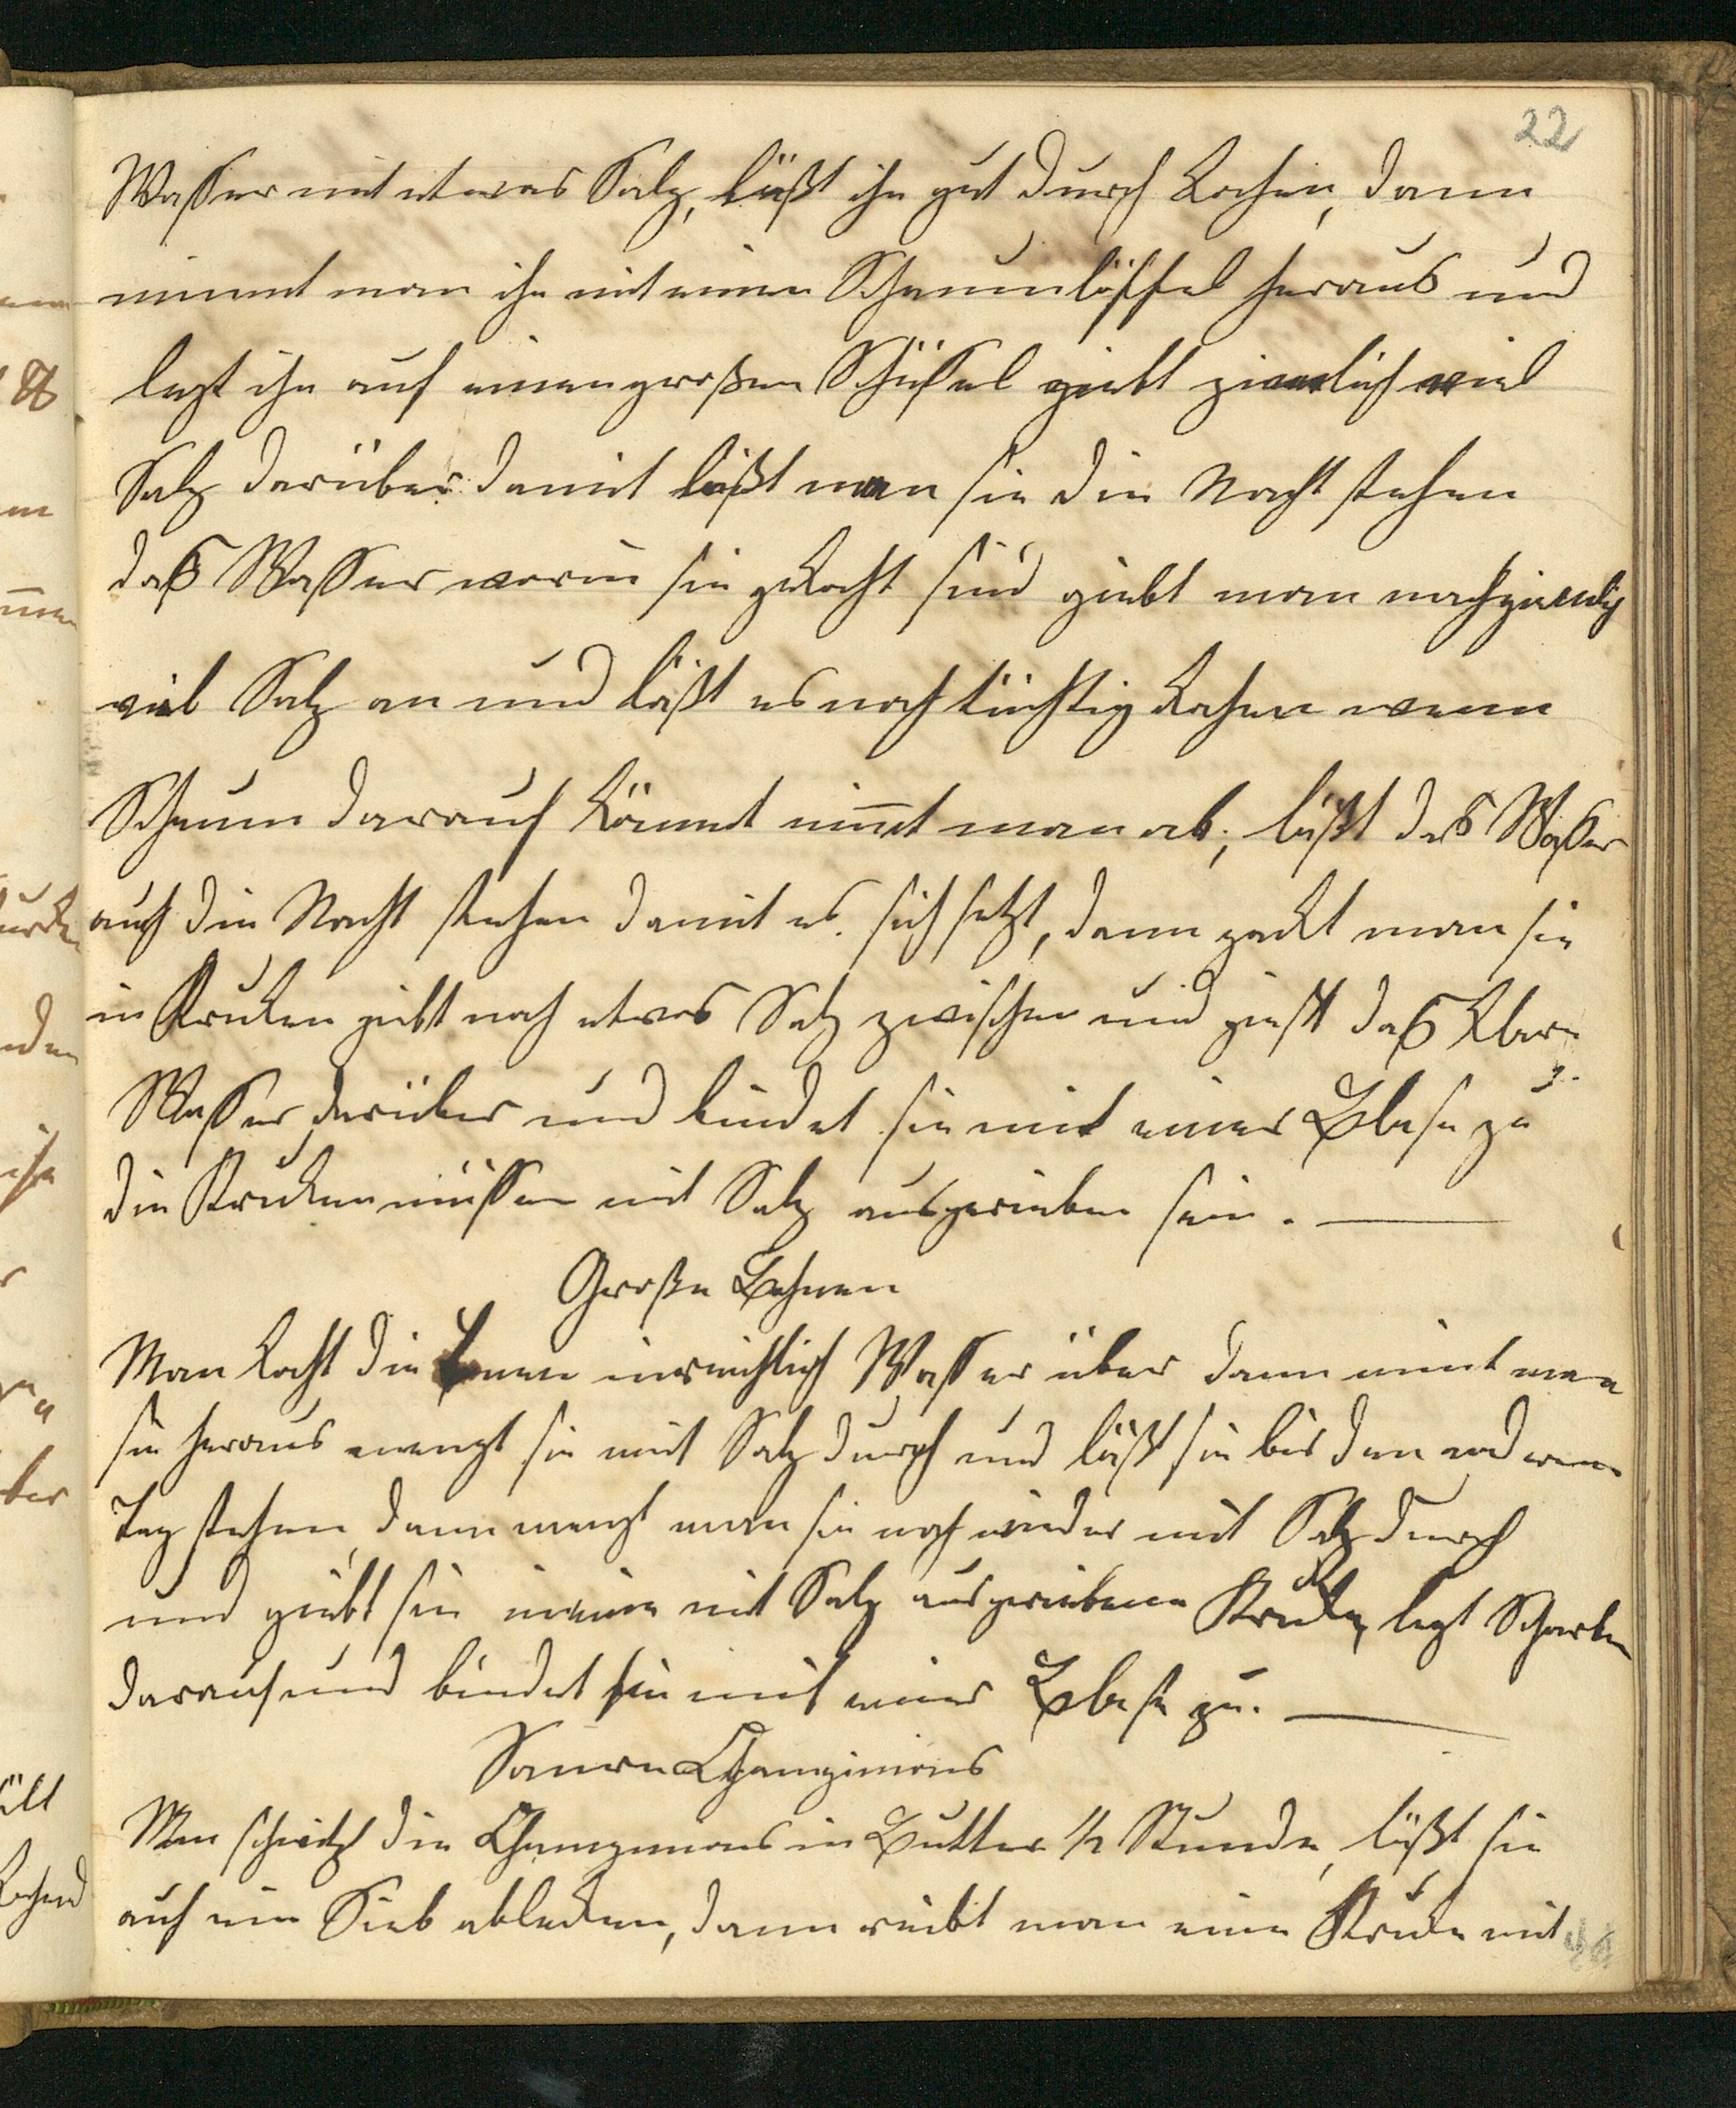 22
Wasser mit etwas Salz, läßt ihn gut durch kochen, dann
nimmt man ihn mit einen Schaumlöffel heraus und
legt ihn auf einen großen Schüssel giebt ziemlich viel
Salz darüber damit läßt man sie die Nacht stehen
daß Wasser worin sie gekocht sind giebt man noch ziemlich
viel Salz an und läßt es noch tüchtig kochen wenn
Schaum darauf kömmt nim̄t man ab, läßt das Wasser
auch die Nacht stehen damit es sich setzt, dann packt man sie
in Kruken giebt noch etwas Salz zwischen und gießt daß klare
Wasser darüber und bindet sie mit einer Blase zu
die Kruken müssen mit Salz ausgerieben sein.
Große Bohnen
Man kocht die in reichlich Wasser über dann nimt man
sie heraus mengt sie mit Salz durch und läßt sie bis den anderen
Tag stehen, dann mengt man sie noch wieder mit Salz durch
und giebt sie in eine mit Salz ausgeriebene Kruke, legt
darauf und bindet sie mit einer Blase zu.
Saure Champinions
Man schwitzt die Champinions in Butter 1/2 Stunde, läßt sie
auf ein Sieb ablecken, dann reibt man eine Kruke mit